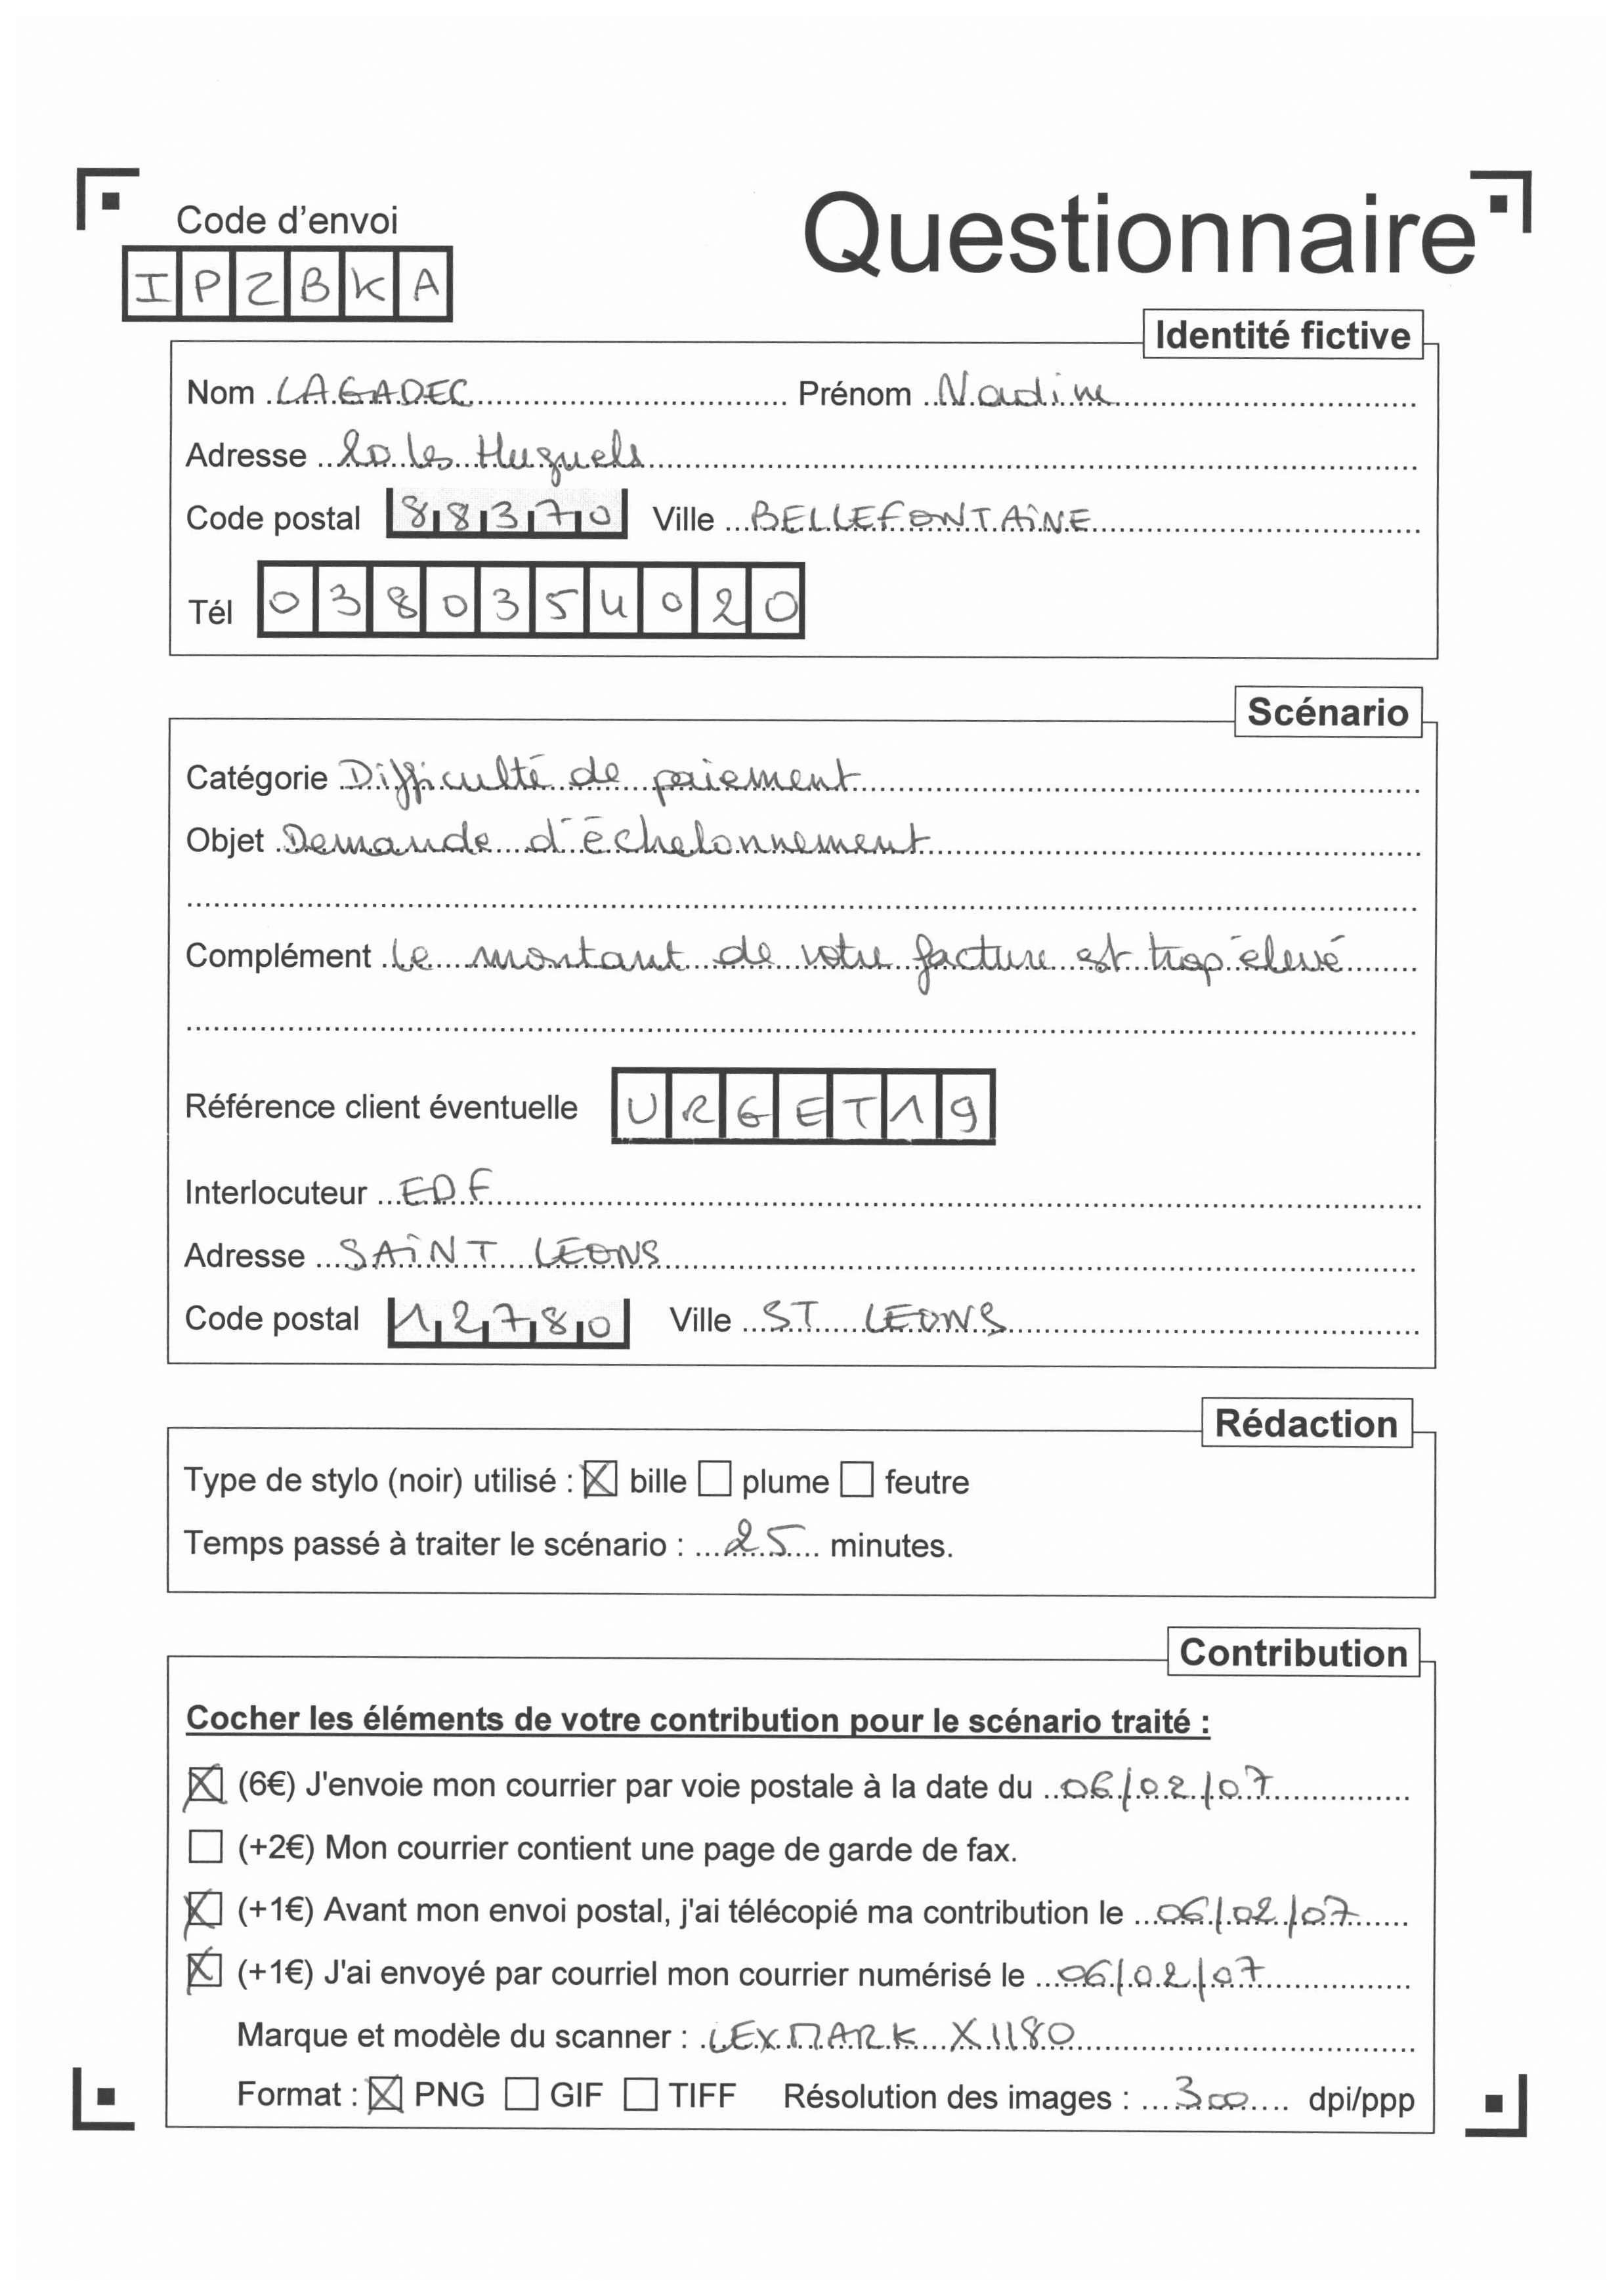 Questionnaire
Code d'envoi
IPZBKA
Identité fictive
Nom LAGADEC Prénom Nadine
Adresse 20 les Huguels
Code postal 88370 Ville BELLEFONTAINE
Tél 0380354020
Scénario
Catégorie Difficulté de paiement
Objet Demande d'échelonnement
Complément Le montant de votre facture est trop élevé
Référence client éventuelle URGET19
Interlocuteur EDF
Adresse SAINT LÉONS
Code postal 12780 Ville ST LEONS
Rédaction
Type de stylo (noir) utilisé : ☒ bille ☐ plume ☐ feutre
Temps passé à traiter le scénario : 25 minutes.
Contribution
Cocher les éléments de votre contribution pour le scénario traité :
☒ (6€) J'envoie mon courrier par voie postale à la date du 06/02/07
☐ (+2€) Mon courrier contient une page de garde de fax.
☒ (+1€) Avant mon envoi postal, j'ai télécopié ma contribution le 06/02/07
☒ (+1€) J'ai envoyé par courriel mon courrier numérisé le 06/02/07
Marque et modèle du scanner : LEXMARK X1180
Format : ☒ PNG ☐ GIF ☐ TIFF Résolution des images : 300 dpi/ppp